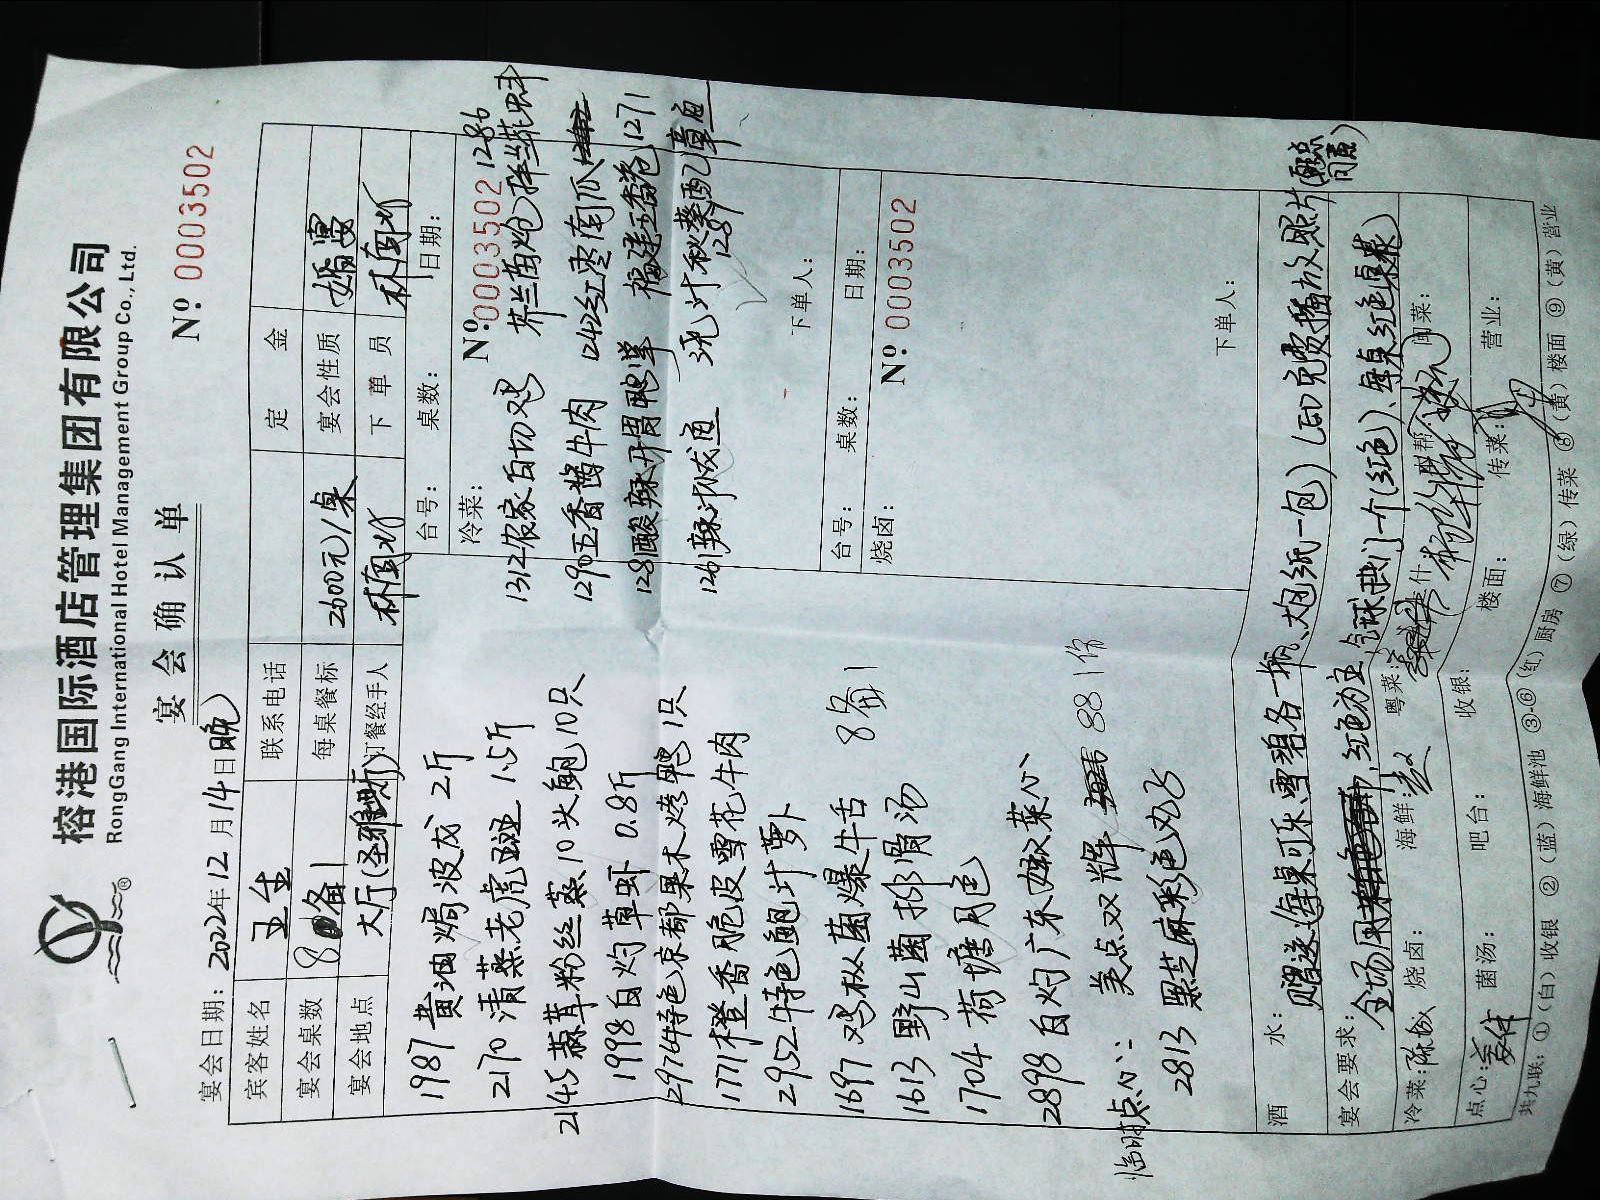 榕港国际酒店管理集团有限公司
RongGang International Hotel Management Group Co., Ltd.
宴会确认单
№ 0003502
宴会日期：2022年12月14日晚
宾客姓名 王生 联系电话 定金
宴会桌数 8备1 每桌餐标 2600元/桌 宴会性质 婚宴
宴会地点 大厅(圣雅斯) 订餐经手人 下单员
1987 黄油焗波龙 2斤
2170 清蒸老虎斑 1.5斤
2145 蒜茸粉丝蒸10头鲍10只
1998 白灼草虾 0.8斤
2976 特色京都果木烤鸭1只
1771 橙香脆皮雪花牛肉
2952 特色鲍汁萝卜
1697 鸡枞菌爆牛舌
8备1
1613 野山菌排骨汤
1704 荷塘月色
2898 白灼广东嫩菜心
临时点心： 美点双辉 88 1份
2813 黑芝麻彩色丸子
台号： 桌数： 日期：
冷菜： № 0003502
1312 农家白切鸡 1286
1290 五香酱牛肉 1242 红枣南瓜
1281 酸辣开胃鸭掌 福建五香卷 1271
1261 辣汁 汁秋葵配章
1289
下单人：
台号： 桌数： 日期：
烧卤： № 0003502
下单人：
酒水： 赠送每桌可乐、雪碧各一瓶、大炮纸一包) LED免费播放照片
宴会要求： 全场用 ，红色为主 气球 1个(红色)、每桌红色桌裙
冷菜： 烧卤： 海鲜： 粤菜： 什 闽菜：
点心： 菌汤： 吧台： 收银： 楼面： 传菜： 营业：
共九联：①(白)收银 ②(蓝)海鲜池 ③-⑥(红)厨房 ⑦(绿)传菜 ⑧(黄)楼面 ⑨(黄)营业